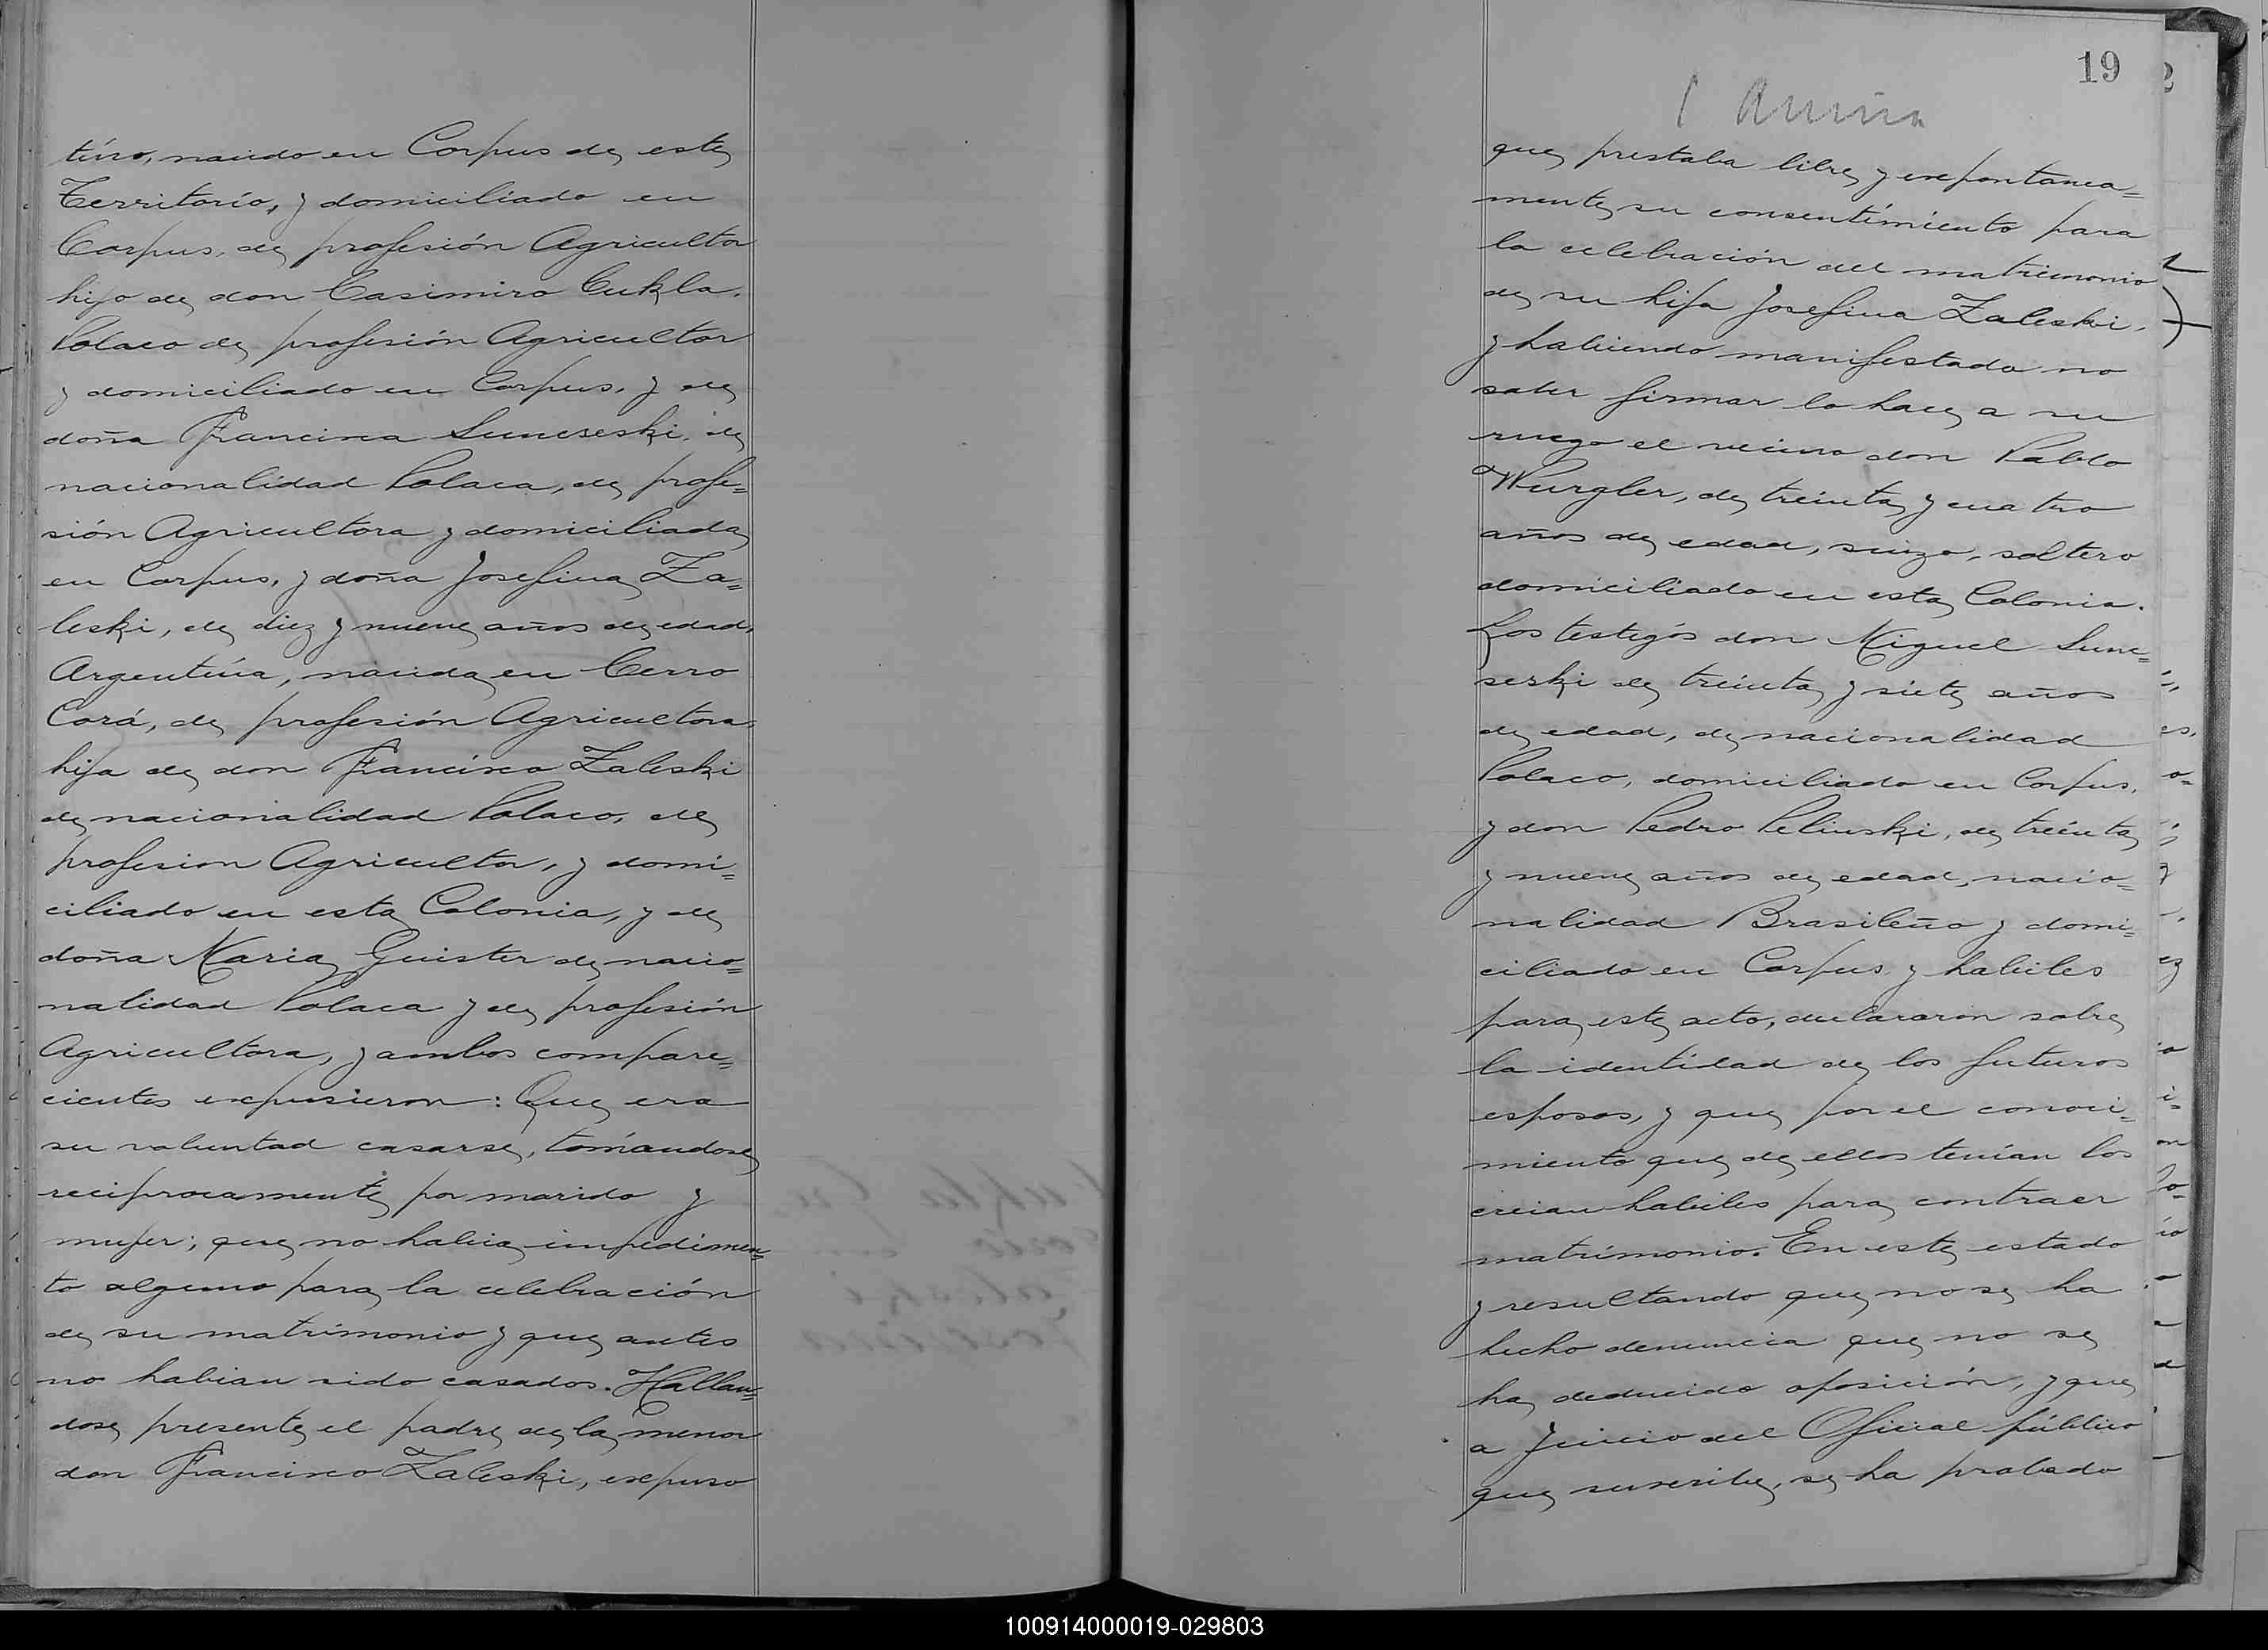 tino, nacido en Corpus de este
Territorio, y domiciliado en
Corpus, de profesión Agricultor
hijo de don Casimiro Cukla,
Polaco de profesión Agricultor
y domiciliado en Corpus, y de
doña Francisca Suneseski, de
nacionalidad Polaca, de profe=
sión Agricultora y domiciliada
en Corpus, y doña Josefina Za=
leski, de diez y nueve años de edad,
Argentina, nacida en Cerro
Corá, de profesión Agricultora,
hija de don Francisco Zaleski
de nacionalidad Polaco, de
profesion Agricultor, y domi=
ciliado en esta Colonia, y de
doña Maria Guister de nacio=
nalidad Polaca y de profesión
Agricultora, y ambos compare=
cientes expusieron: Que era
su voluntad casarse, tomandose
reciprocamente por marido y
mujer; que no habia impedimen=
to alguno para la celebración
de su matrimonio y que antes
no habian sido casados. Hallan=
dose presente el padre de la menor
don Francisco Zaleski, expuso
19
que prestaba libre y expontanea=
mente su consentimiento para
la celebración del matrimonio
de su hija Josefina Zaleski,
y habiendo manifestado no
saber firmar lo hace a su
ruego el vecino don Pablo
Wurgler, de treinta y cuatro
años de edad, suizo, soltero
domiciliado en esta Colonia.
Los testigos don Miguel Sune=
seski de treinta y siete años
de edad, de nacionalidad
Polaco, domiciliado en Corpus,
y don Pedro Pelinski, de treinta
y nueve años de edad, nacio=
nalidad Brasileño y domi=
ciliado en Corpus y habiles
para este acto, declararon sobre
la identidad de los futuros
esposos, y que por el conoci=
miento que de ellos tenían los
creian habiles para contraer
matrimonio. En este estado
y resultando que no se ha
hecho denuncia que no se
ha deducido oposición, y que
a Juicio del Oficial público
que suscribe, se ha probado
100914000019-029803